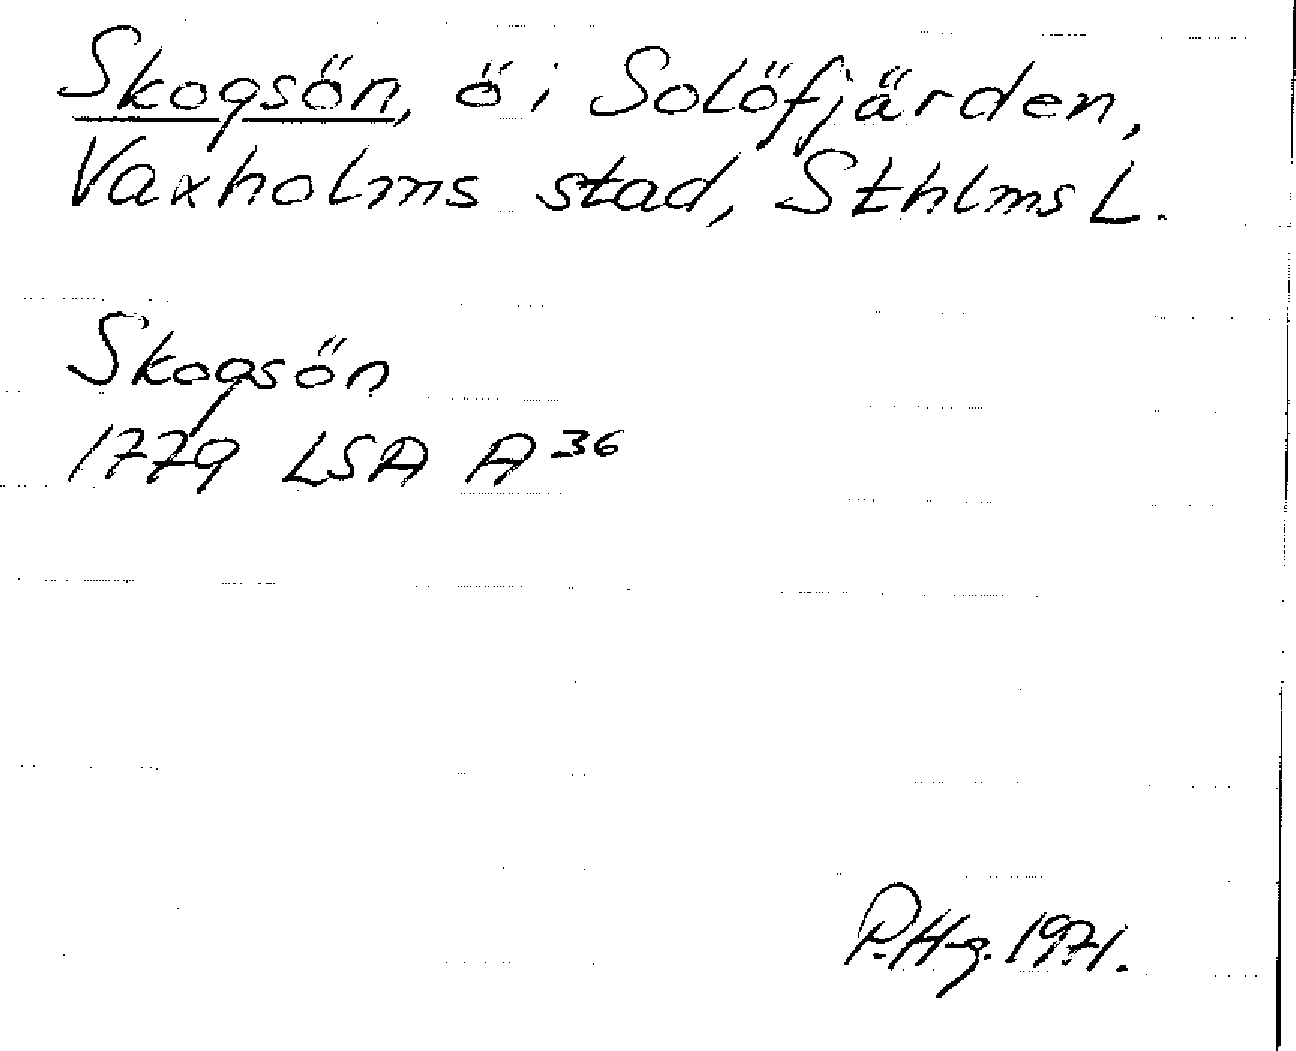 Skogsön, ö i Solöfjärden,
Vaxholms stad, Sthlms L.
Skogsön
1779 LSA A 36
P.H-g. 1971.